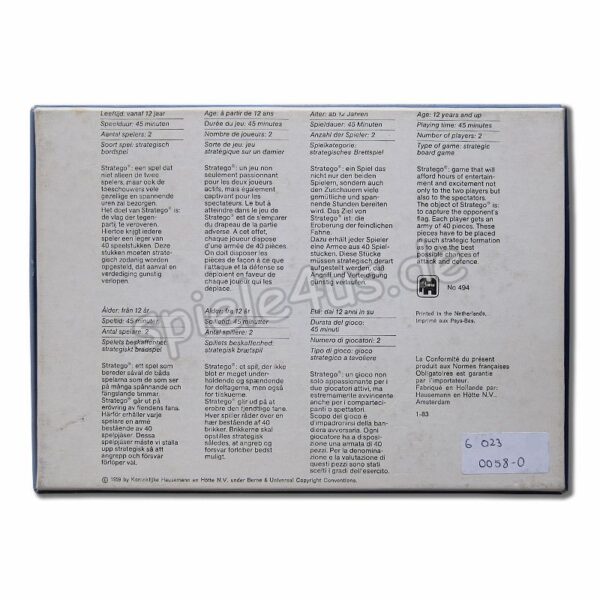 Leeftijd: vanaf 12 jaar
Speelduur: 45 minuten
Aantal spelers: 2
Soort spel: strategisch
bordspel
Stratego®: een spel dat
niet alleen de twee
spelers, maar ook de
toeschouwers vele
gezellige en spannende
uren zal bezorgen.
Het doel van Stratego® is:
de vlag der tegen-
partij te veroveren.
Hiertoe krijgt iedere
speler een leger van
40 speelstukken. Deze
stukken moeten strate-
gisch zodanig worden
opgesteld, dat aanval en
verdediging gunstig
verlopen.
Age: à partir de 12 ans
Durée du jeu: 45 minutes
Nombre de joueurs: 2
Sorte de jeu: jeu
stratégique sur un damier
Stratego®: un jeu non
seulement passionnant
pour les deux joueurs
actifs, mais également
captivant pour les
spectateurs. Le but à
atteindre dans le jeu de
Stratego® est de s'emparer
du drapeau de la partie
adverse. A cet effet,
chaque joueur dispose
d'une armée de 40 pièces.
On doit disposer les
pièces de façon à ce que
l'attaque et la défense se
passent en faveur de
chaque joueur qui les
deplace.
Alter: ab 12 Jahren
Spieldauer: 45 Minuten
Anzahl der Spieler: 2
Spielkategorie:
strategisches Brettspiel
Stratego®: ein Spiel das
nicht nur den beiden
Spielern, sondern auch
den Zuschauern viele
gemütliche und span-
nende Stunden bereiten
wird. Das Ziel von
Stratego® ist: die
Eroberung der feindlichen
Fahne.
Dazu erhält jeder Spieler
eine Armee aus 40 Spiel-
stücken. Diese Stücke
müssen strategisch derart
aufgestellt werden, daß
Angriff und Verteidigung
günstig verlaufen.
Age: 12 years and up
Playing time: 45 minutes
Number of players: 2
Type of game: strategic
board game
Stratego®: game that will
afford hours of entertain-
ment and excitement not
only to the two players but
also to the spectators.
The object of Stratego® is:
to capture the opponent's
flag. Each player gets an
army of 40 pieces. These
pieces have to be placed
in such strategic formation
as to give the best
possible chances of
attack and defence.
No 494
Printed in the Netherlands.
Imprimé aux Pays-Bas.
La Conformité du présent
produit aux Normes françaises
Obligatoires est garantie
par l'importateur.
Fabriqué en Hollande par:
Hausemann en Hötte N.V.,
Amsterdam
1-83
Ålder: från 12 år
Speltid: 45 minuter
Antal spelare: 2
Spelets beskaffenhet:
strategiskt brädspel
Stratego®: ett spel som
bereder såväl de båda
spelarna som de som ser
på många spännande och
fängslande timmar.
Stratego® går ut på
erövring av fiendens fana.
Härför erhåller varje
spelare en armé
bestående av 40
spelpjäser. Dessa
spelpjäser måste vi ställa
upp strategisk så att
angrepp och försvar
förlöper väl.
Alder: fra 12 år
Spilletid: 45 minutter
Antal spillere: 2
Spillets beskaffenhed:
strategisk brætspil
Stratego®: et spil, der ikke
blot er meget under-
holdende og spændende
for deltagerne, men også
for tilskuerne.
Stratego® går ud på at
erobre den fjendtlige fane.
Hver spiller råder over en
hær bestående af 40
brikker. Brikkerne skal
opstilles strategisk
således, at angreb og
forsvar forløber bedst
muligt.
Età: dai 12 anni in su
Durata del gioco:
45 minuti
Numero di giocatori: 2
Tipo di gioco: gioco
strategico a tavoliere
Stratego®: un gioco non
solo appassionante per i
due giocatori attivi, ma
estremamente avvincente
anche per i comparteci-
panti o spettatori.
Scopo del gioco è
d'impadronirsi della ban-
diera avversaria. Ogni
giocatore ha a disposi-
zione una armata di 40
pezzi. Per la denomina-
zione e la valutazione di
questi pezzi sono stati
scelti i gradi dell'esercito.
6 023
0058-0
© 1959 by Koninklijke Hausemann en Hötte N.V. under Berne & Universal Copyright Conventions.
spiele4us.de